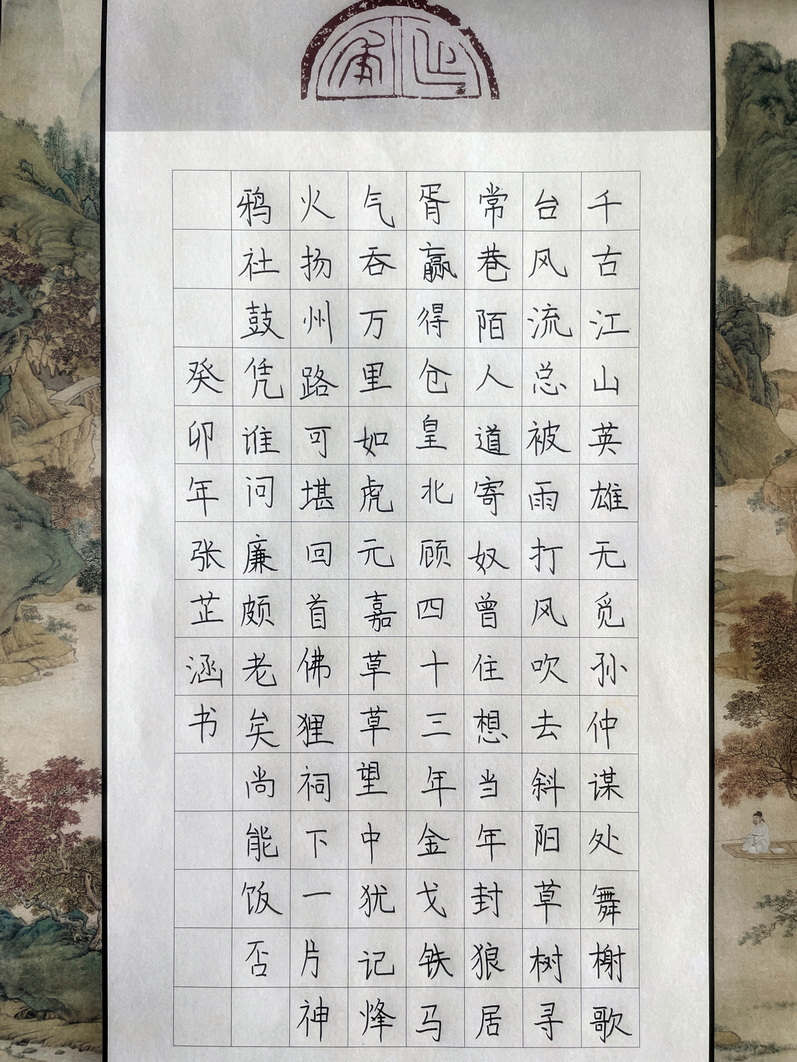 千古江山英雄无觅孙仲谋处舞榭歌
台风流总被雨打风吹去斜阳草树寻
常巷陌人道寄奴曾住想当年封狼居
胥赢得仓皇北顾四十三年金戈铁马
气吞万里如虎元嘉草草望中犹记烽
火扬州路可堪回首佛狸祠下一片神
鸦社鼓凭谁问廉颇老矣尚能饭否
癸卯年张芷涵书